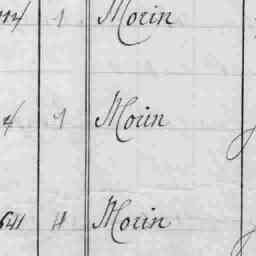 1 Morin
1 Morin
641 H Morin